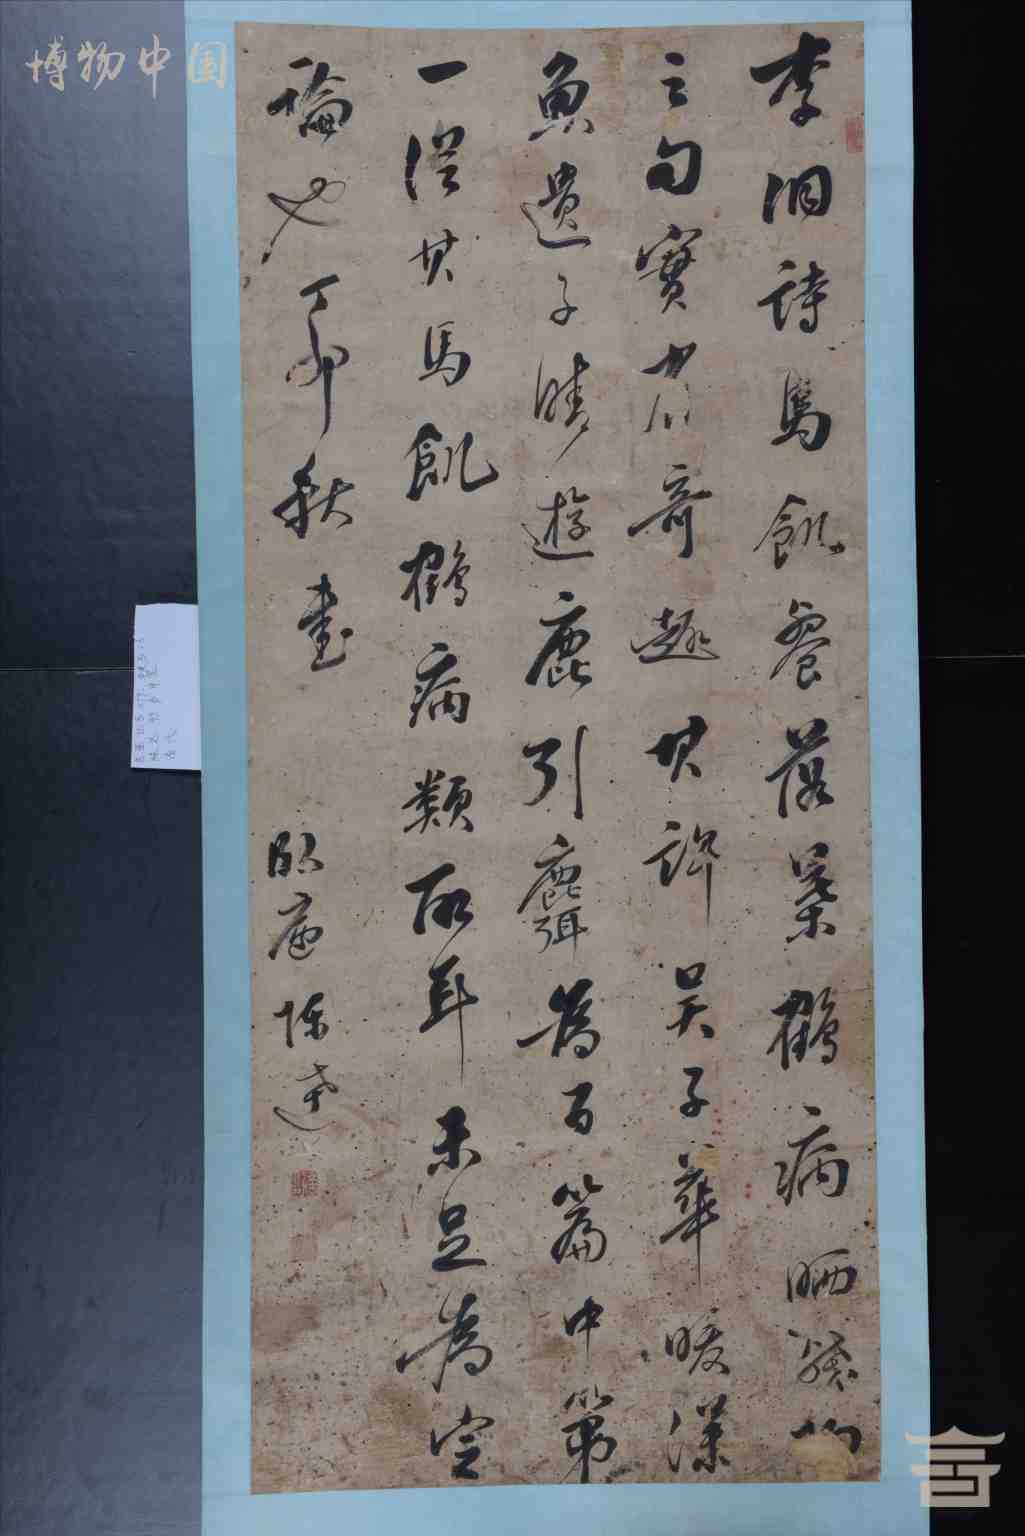 博物中国
李洞詩馬飢餐落葉鶴病晒殘陽
之句實有奇趣其許吳子華暖漾
魚遺子晴遊鹿引麛為百篇中第
一從其馬飢鶴病類取耳未足為定
論也丁卯秋書 臥庵陳